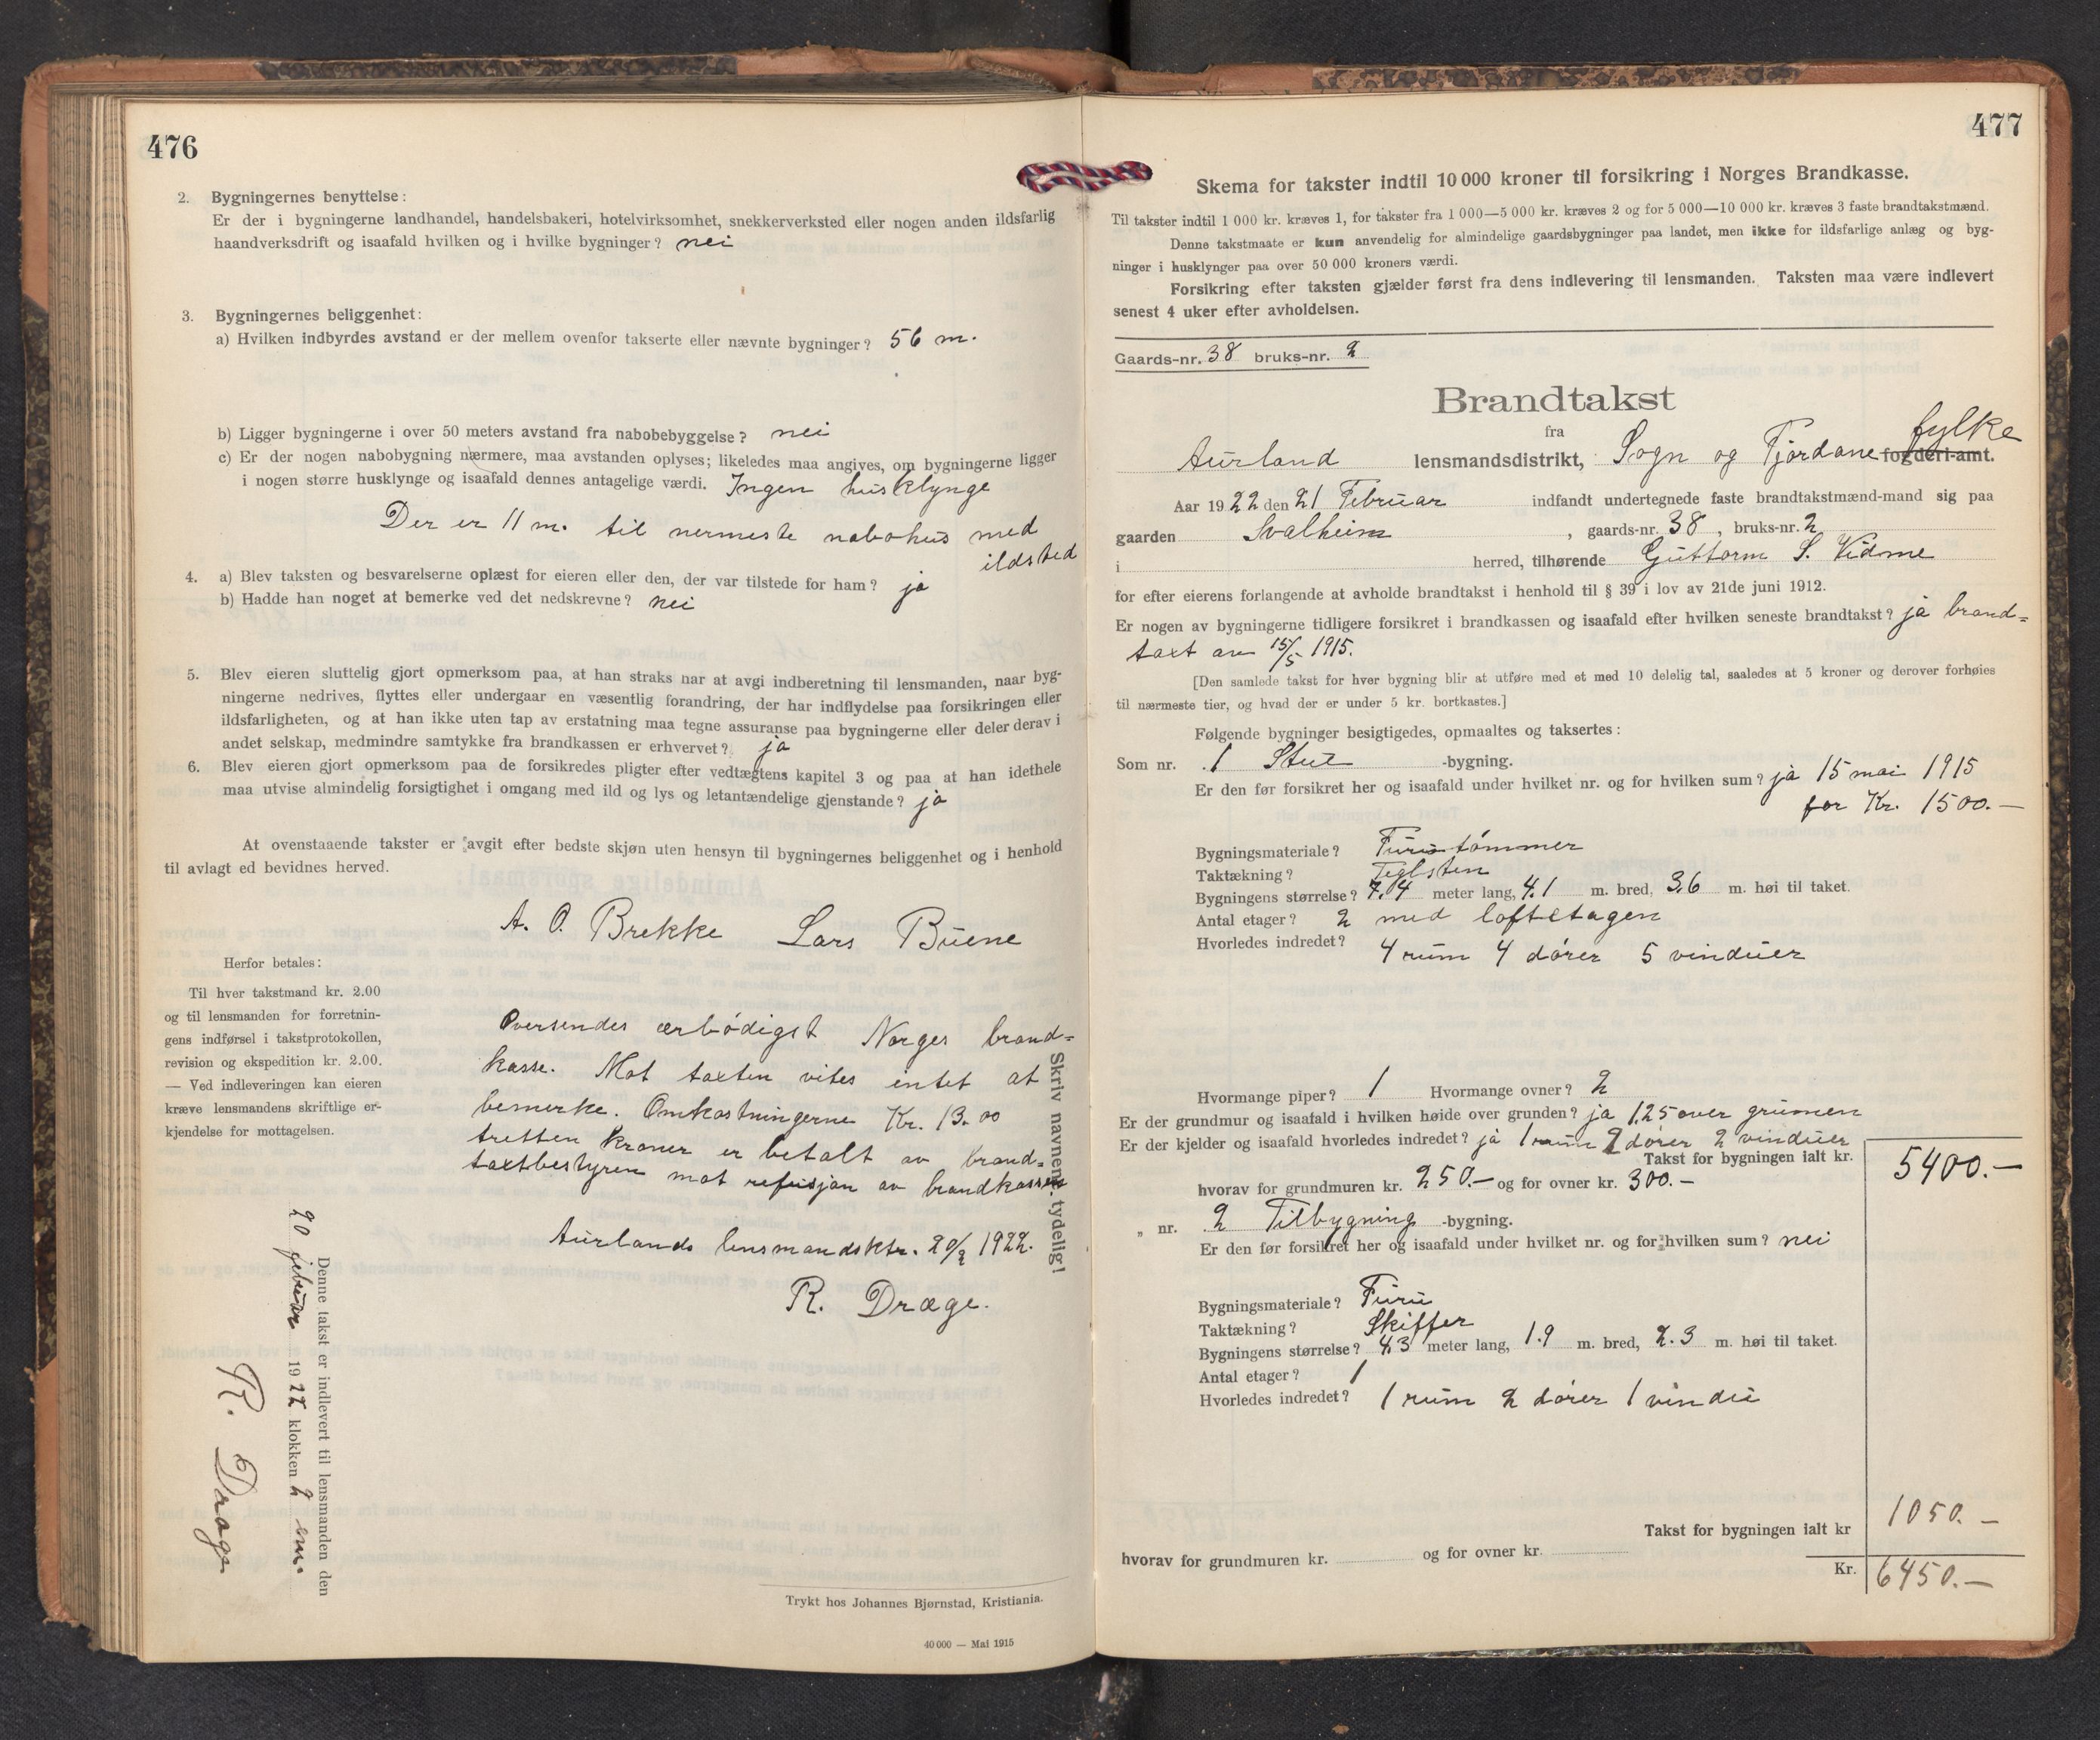 476
2. Bygningernes benyttelse:
Er der i bygningerne landhandel, handelsbakeri, hotelvirksomhet, snekkerverksted eller nogen anden ildsfarlig
haandverksdrift og isaafald hvilken og i hvilke bygninger? nei
3. Bygningernes beliggenhet:
a) Hvilken indbyrdes avstand er der mellem ovenfor takserte eller nævnte bygninger? 56 m.
b) Ligger bygningerne i over 50 meters avstand fra nabobebyggelse? nei
c) Er der nogen nabobygning nærmere, maa avstanden oplyses; likeledes maa angives, om bygningerne ligger
i nogen større husklynge og isaafald dennes antagelige værdi. Ingen husklynge
Der er 11 m. til nermeste nabohus med
ildsted
4. a) Blev taksten og besvarelserne oplæst for eieren eller den, der var tilstede for ham? ja
b) Hadde han noget at bemerke ved det nedskrevne? nei
5. Blev eieren sluttelig gjort opmerksom paa, at han straks har at avgi indberetning til lensmanden, naar byg-
ningerne nedrives, flyttes eller undergaar en væsentlig forandring, der har indflydelse paa forsikringen eller
ildsfarligheten, og at han ikke uten tap av erstatning maa tegne assuranse paa bygningerne eller deler derav i
andet selskap, medmindre samtykke fra brandkassen er erhvervet? ja
6. Blev eieren gjort opmerksom paa de forsikredes pligter efter vedtægtens kapitel 3 og paa at han idethele
maa utvise almindelig forsigtighet i omgang med ild og lys og letantændelige gjenstande? ja
At ovenstaaende takster er avgit efter bedste skjøn uten hensyn til bygningernes beliggenhet og i henhold
til avlagt ed bevidnes herved.
A. O. Brekke Lars Buene
Herfor betales:
Til hver takstmand kr. 2.00
og til lensmanden for forretnin-
gens indførsel i takstprotokollen,
revision og ekspedition kr. 2.00.
— Ved indleveringen kan eieren
kræve lensmandens skriftlige er-
kjendelse for mottagelsen.
Oversendes ærbødigst Norges brand=
kasse. Mot taxten vites intet at
bemerke. Omkostningerne Kr. 13.00
tretten kroner er betalt av brand=
taxtbestyren mot refusjon av brandkassen
Aurlands lensmandsktr. 20/2 1922.
R. Dræge.
Skriv navnene tydelig!
Denne takst er indlevert til lensmanden den
20 februar 1922 klokken 2 em.
R. Dræge
Trykt hos Johannes Bjørnstad, Kristiania.
40 000 — Mai 1915
477
Skema for takster indtil 10 000 kroner til forsikring i Norges Brandkasse.
Til takster indtil 1 000 kr. kræves 1, for takster fra 1 000—5 000 kr. kræves 2 og for 5 000—10 000 kr. kræves 3 faste brandtakstmænd.
Denne takstmaate er kun anvendelig for almindelige gaardsbygninger paa landet, men ikke for ildsfarlige anlæg og byg-
ninger i husklynger paa over 50 000 kroners værdi.
Forsikring efter taksten gjælder først fra dens indlevering til lensmanden. Taksten maa være indlevert
senest 4 uker efter avholdelsen.
Gaards-nr. 38 bruks-nr. 2
Brandtakst
fra
Aurland lensmandsdistrikt, Sogn og Fjordane fogderi-amt. fylke
Aar 1922 den 21 Februar indfandt undertegnede faste brandtakstmænd-mand sig paa
gaarden Svalheim, gaards-nr. 38, bruks-nr. 2
i herred, tilhørende Guttorm S. Vidme
for efter eierens forlangende at avholde brandtakst i henhold til § 39 i lov av 21de juni 1912.
Er nogen av bygningerne tidligere forsikret i brandkassen og isaafald efter hvilken seneste brandtakst? ja brand=
taxt av 15/5 1915.
[Den samlede takst for hver bygning blir at utføre med et med 10 delelig tal, saaledes at 5 kroner og derover forhøies
til nærmeste tier, og hvad der er under 5 kr. bortkastes.]
Følgende bygninger besigtigedes, opmaaltes og taksertes:
Som nr. 1 Stue -bygning.
Er den før forsikret her og isaafald under hvilket nr. og for hvilken sum? ja 15 mai 1915
for Kr. 1500.—
Bygningsmateriale? Furutømmer
Taktækning? Teglsten
Bygningens størrelse? 7.4 meter lang, 4.1 m. bred, 3.6 m. høi til taket.
Antal etager? 2 med loftetagen
Hvorledes indredet? 4 rum 4 dører 5 vinduer
Hvormange piper? 1 Hvormange ovner? 2
Er der grundmur og isaafald i hvilken høide over grunden? ja 1,25 over grunnen
Er der kjelder og isaafald hvorledes indredet? ja 1 rum 2 dører 2 vinduer
Takst for bygningen ialt kr. 5400.—
hvorav for grundmuren kr. 250.— og for ovner kr. 300.—
„ nr. 2 Tilbygning -bygning.
Er den før forsikret her og isaafald under hvilket nr. og for hvilken sum? nei
Bygningsmateriale? Furu
Taktækning? Skiffer
Bygningens størrelse? 4.3 meter lang, 1.9 m. bred, 2.3 m. høi til taket.
Antal etager? 1
Hvorledes indredet? 1 rum 2 dører 1 vindu
Takst for bygningen ialt kr 1050.—
hvorav for grundmuren kr. og for ovner kr.
Kr. 6450.—